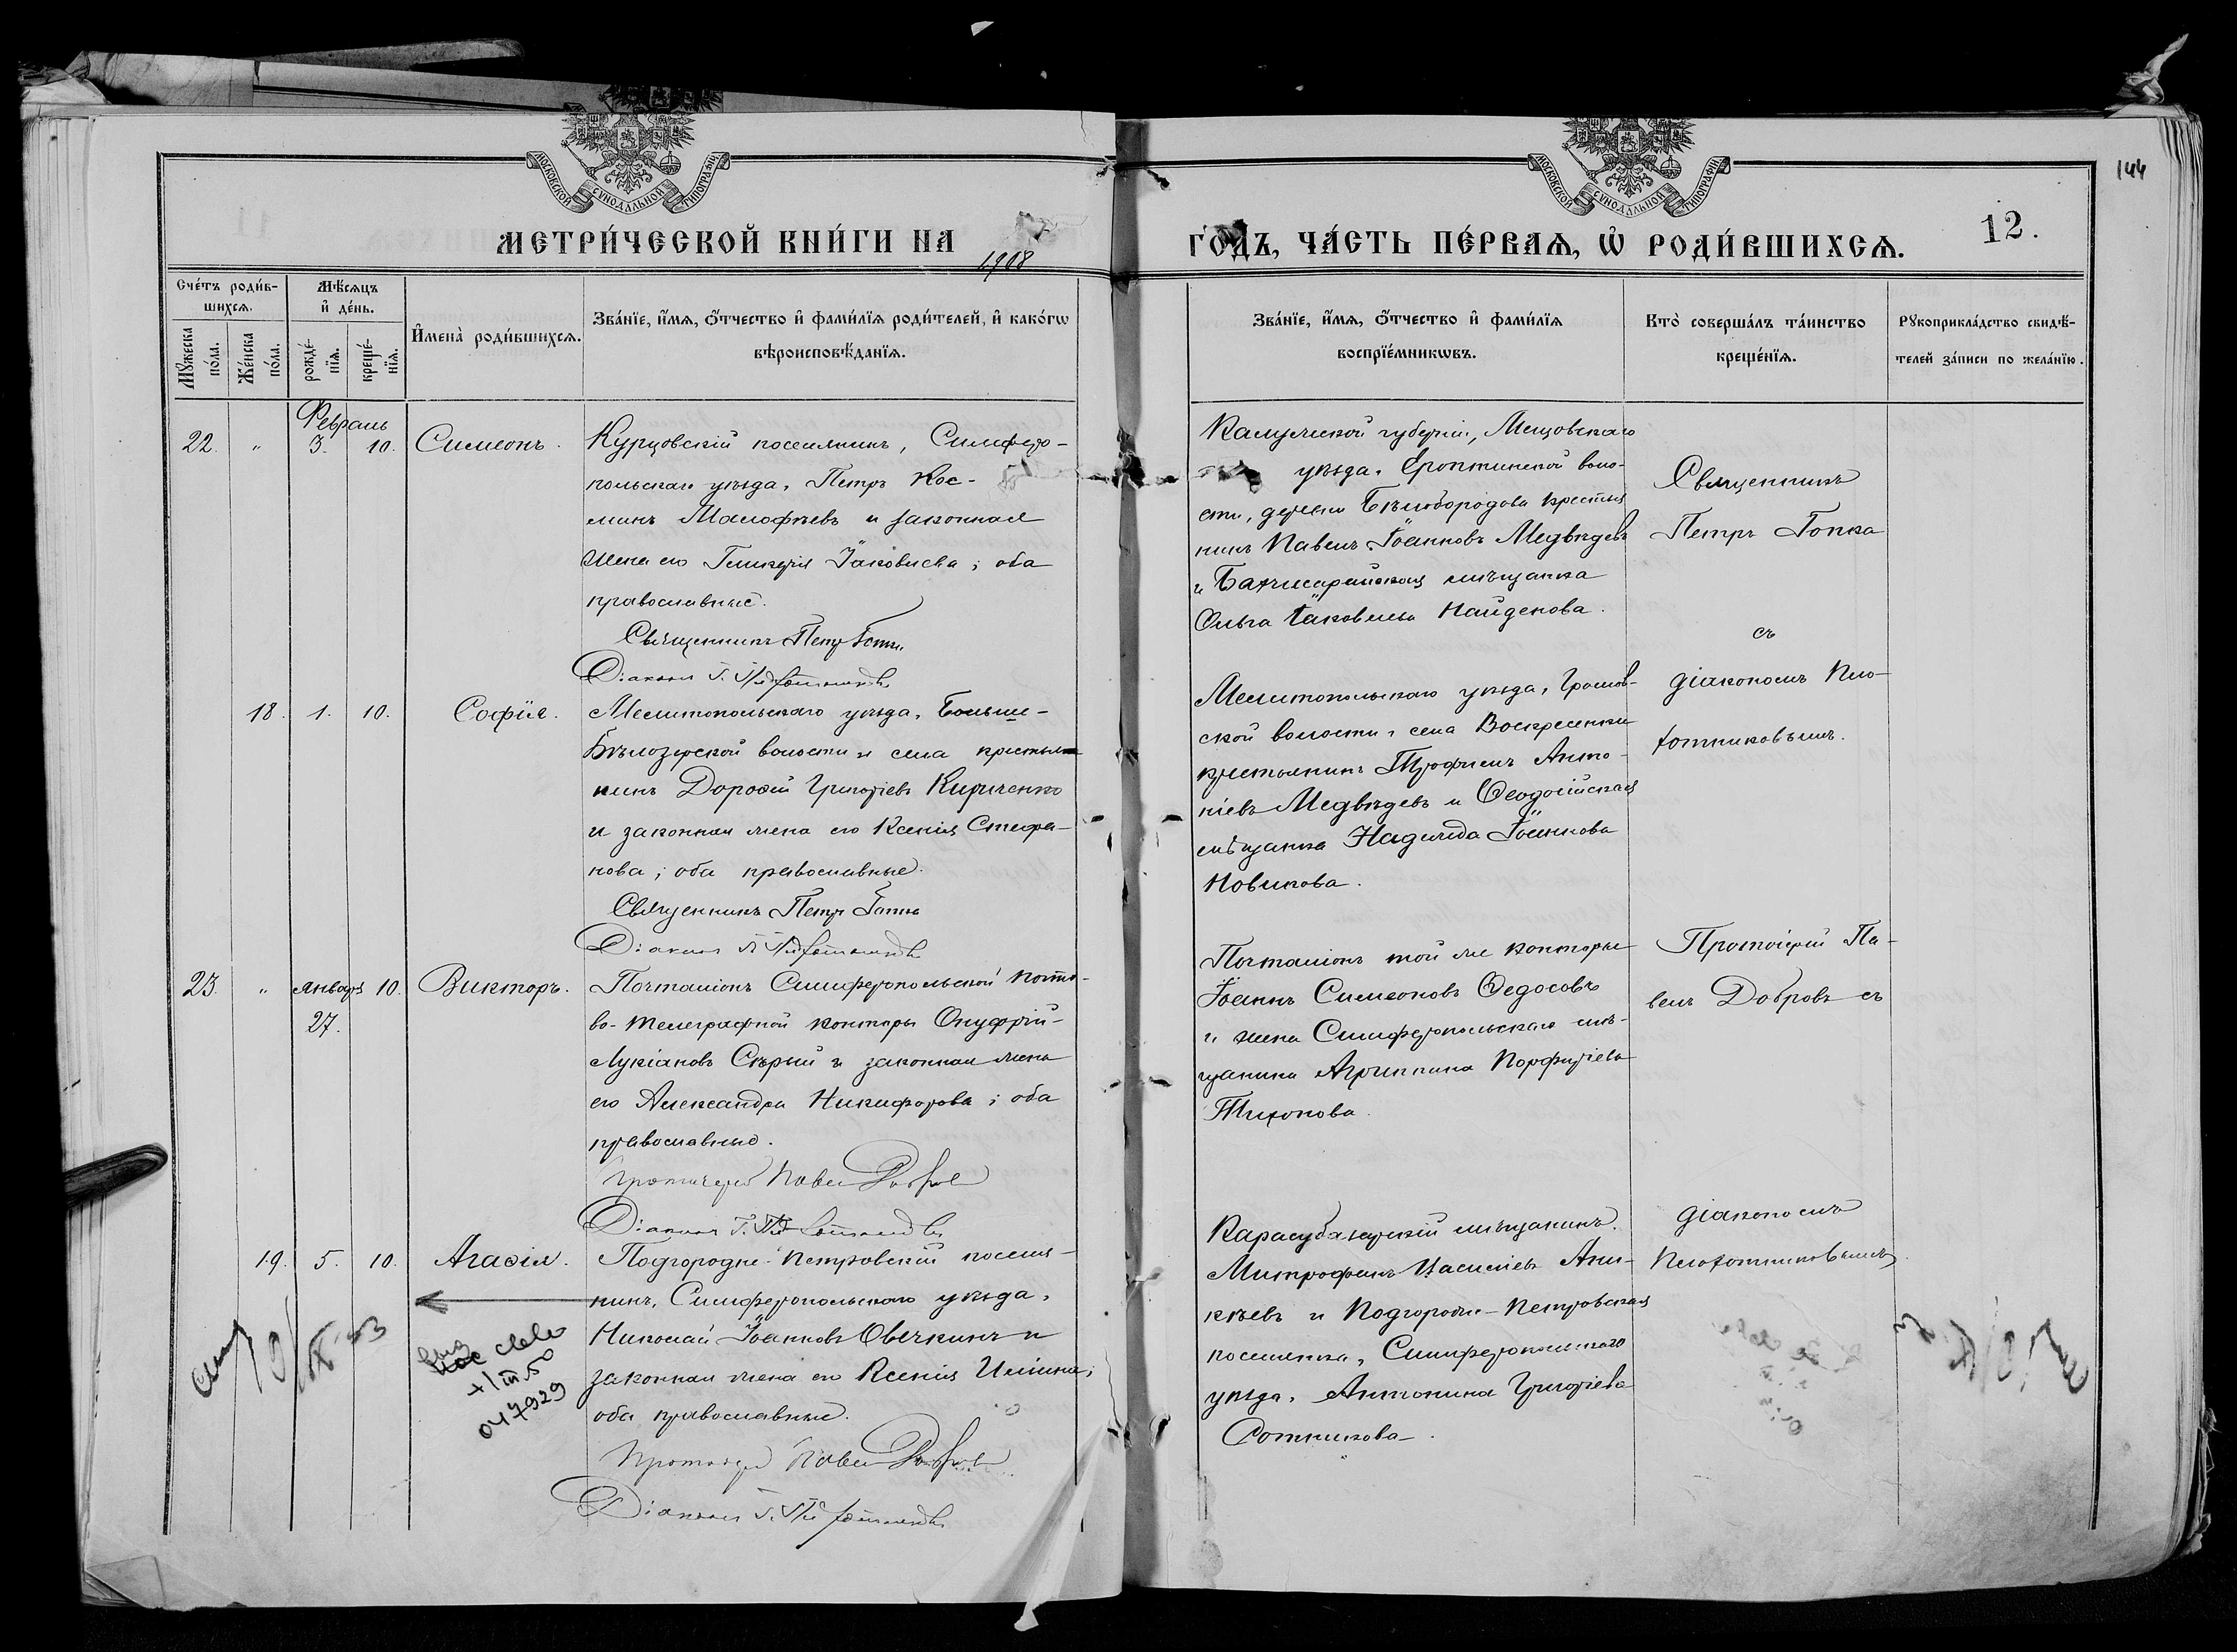 144
МОСКОВСКОЙ СѴНОДАЛЬНОЙ ТИПОГРАФІИ
МОСКОВСКОЙ СѴНОДАЛЬНОЙ ТИПОГРАФІИ
МЕТРИ́ЧЕСКОЙ КНИ́ГИ НА 1908
ГО́ДЪ, ЧА́СТЬ ПЕ́РВАѦ, Ѡ҆ РОДИ́ВШИХСѦ.
12.
Сче́тъ роди́в-
шихсѧ.
Мѣ́сѧцъ
и҆ де́нь.
Мꙋ́жеска
по́ла.
Же́нска
по́ла.
рожде́-
нїѧ.
креще́-
нїѧ.
И҆мена̀ роди́вшихсѧ.
Зва́нїе, и҆́мѧ, ѻ҆́тчество и҆ фамі́лїѧ роди́телей, и҆ како́гѡ
вѣроисповѣ́данїѧ.
Зва́нїе, и҆́мѧ, ѻ҆́тчество и҆ фамі́лїѧ
воспрїе́мникѡвъ.
Кто̀ соверша́лъ та́инство
креще́нїѧ.
Рꙋкоприкла́дство свидѣ́-
телей за́писи по жела́нїю.
Февраль
22. " 3. 10. Симеонъ.
Курцовскій поселянинъ, Симферо-
польскаго уѣзда, Петръ Кос-
минъ Малофѣевъ и законная
жена его Гликерія Іаковлева; оба
православные.
Священникъ Петръ Гопка
Діаконъ
Калужской губерніи, Мещовскаго
уѣзда, волo-
сти, деревни Бѣлобородова крестья
нинъ Павелъ Іоанновъ Медвѣдевъ
и Бахчисарайская мѣщанка
Ольга Іаковлева Найденова.
Священникъ
Петръ Гопка
съ
діакономъ Пло-
хотниковымъ.
18. 1. 10. Софія.
Мелитопольскаго уѣзда, Больше-
Бѣлозерской волости и села крестья
нинъ Дороѳей Григоріевъ Кириченко
и законная жена его Ксенія Стефа-
нова; оба православные.
Священникъ Петръ Гопка
Діаконъ
Мелитопольскаго уѣзда,
ской волости, села Воскресенки
крестьянинъ Трофимъ Анто-
ніевъ Медвѣдевъ и Ѳеодосійская
мѣщанка Надежда Іоаннова
Новикова.
23. " Января 10. Викторъ.
27.
Почталіонъ Симферопольской почто-
во-телеграфной конторы Онуфрій
Лукіановъ Сѣрый и законная жена
его Александра Никифорова; оба
православные.
Протоіерей Павелъ Добровъ
Діаконъ
Почталіонъ той же конторы
Іоаннъ Симеоновъ Ѳедосовъ
и жена Симферопольскаго мѣ-
щанина Агриппина Порфиріева
Тихонова.
Протоіерей Па-
велъ Добровъ съ
діакономъ
Плохотниковымъ.
19. 5. 10. Агаѳія.
Подгородне-Петровскій поселя-
нинъ, Симферопольскаго уѣзда,
Николай Іоанновъ Овечкинъ и
законная жена его Ксенія Иліина;
оба православные.
Протоіерей Павелъ Добровъ
Діаконъ
Карасубазарскій мѣщанинъ
Митрофанъ Василіевъ Ани-
кѣевъ и Подгородне-Петровская
поселянка, Симферопольскаго
уѣзда, Антонина Григоріева
Сотникова.
047929